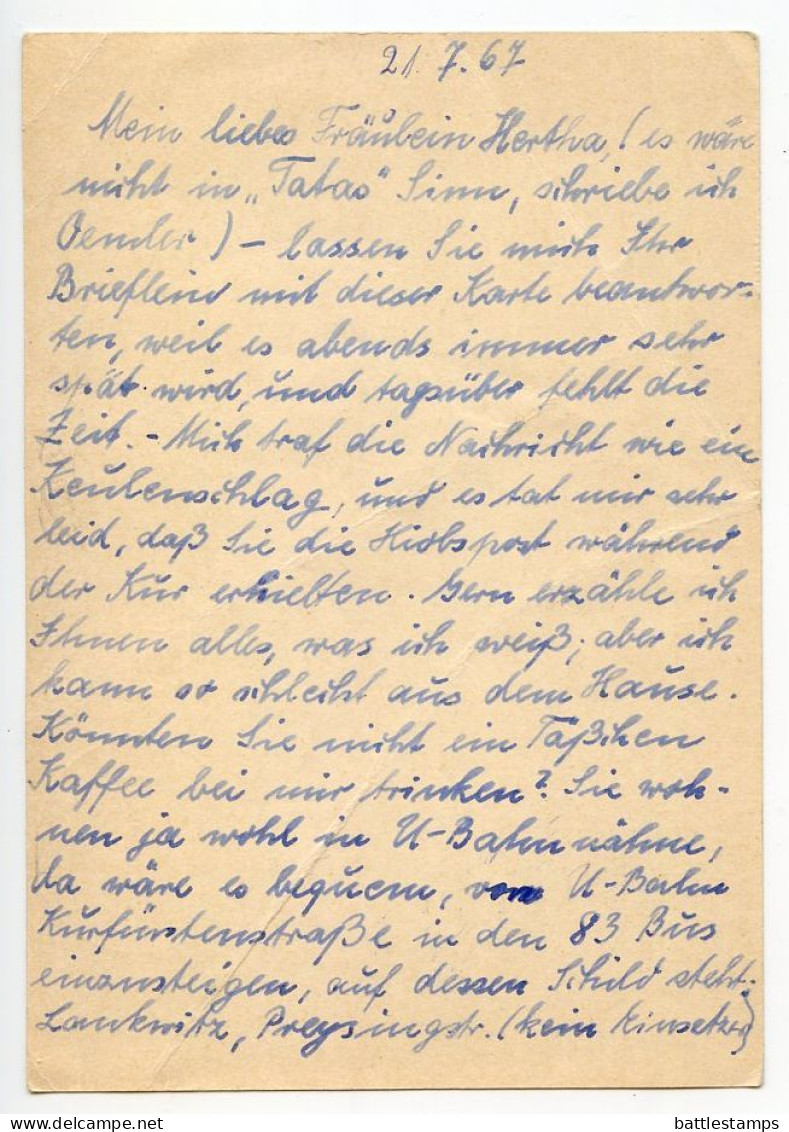 21. 7. 67
Mein liebes Fräulein Hertha, (es wäre
nicht in „Tatas" Sinn, schriebe ich
Oemler) – lassen Sie mich Ihr
Brieflein mit dieser Karte beantwor-
ten, weil es abends immer sehr
spät wird, und tagsüber fehlt die
Zeit. – Mich traf die Nachricht wie ein
Keulenschlag, und es tat mir sehr
leid, daß Sie die Hiobspost während
der Kur erhielten. Gern erzähle ich
Ihnen alles, was ich weiß; aber ich
kann so schlecht aus dem Hause.
Könnten Sie nicht ein Täßchen
Kaffee bei mir trinken? Sie woh-
nen ja wohl in U-Bahnnähe,
da wäre es bequem, vom U-Bahn
Kurfürstenstraße in den 83 Bus
einzusteigen, auf dessen Schild steht:
Lankwitz, Preysingstr. (kein Einsetzer)
battlestamps